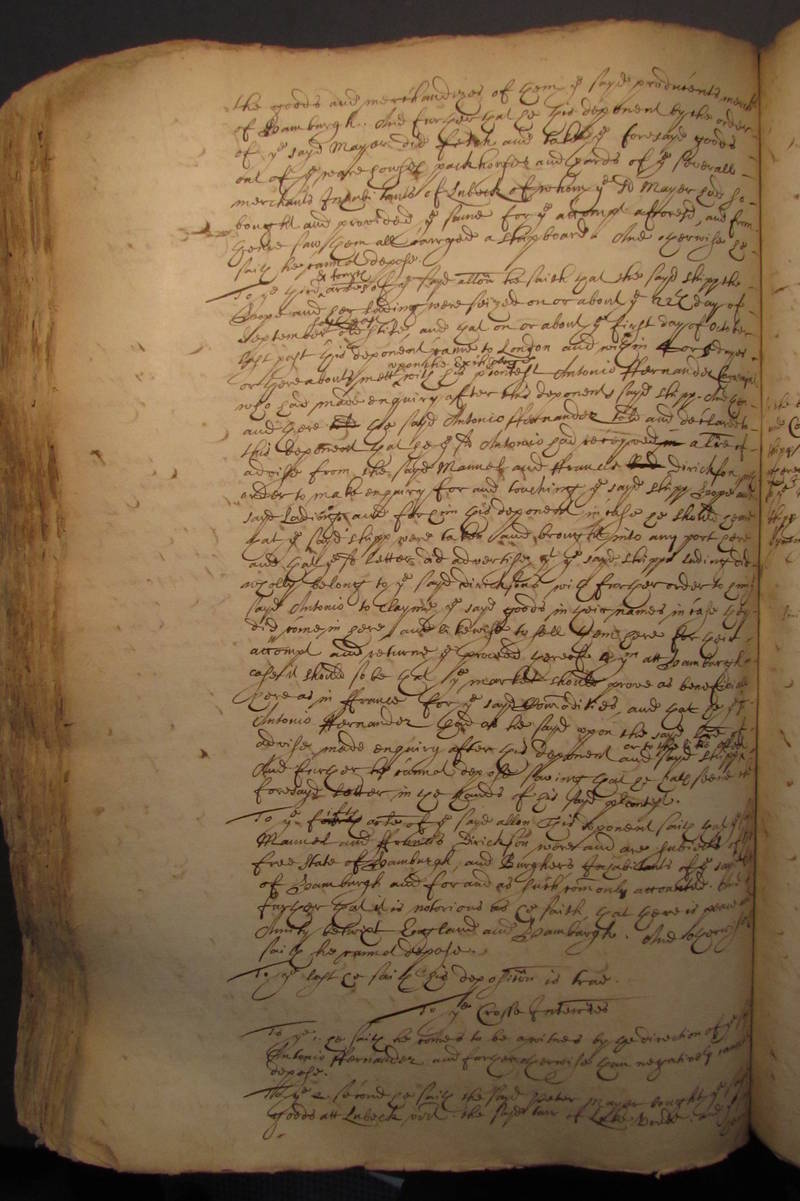 the goods and merchandizes of them ye sayd producents merch
of Hamburgh. And further that he this deponent by the order
of ye sayd Mayer did fetch and take ye foresayd goods
out of ye warehouses packhouses and yards of ye severall
merchants Inhabitants of Lubeck of whom ye sd Mayer had so
bought and provided ye same for ye accompt aforesd, and from
thence saw them all carryed a shipboard. And otherwise he
saith he cannot depose.
To ye third arter of ye sayd allon he saith that the sayd shipp the
Hope and her lading were seized on or about ye 22th day of
September old stile, and that on or about ye first day of October
last past this deponent came to London and within 4 or 5 dayes
or thereabouts mett with his producent Antonio Hernandez
who had made enquiry after this deponents sayd shipp. And then
and there he sayd Antonio Hernandez told and declared to
this deponent that he ye sd Antonio had received a letter of
advise from the sayd Manuel and Francis Dirickson with
order to make enquiry for and touching ye sayd shipp Hope and
sayd Lading and for him this deponent in case he should heare
that ye sayd shipp were taken and brought into any port here
and that ye sd letter did advertise yt ye sayd shipps lading did
wholly belong to ye sayd Diricksons with further order to him
sayd Antonio to clayme ye sayd goods in their names in case they
did come in here, and likewise to sell them here for their
accompt and returne ye proceed thereof to ym att Hamburgh in
case it should so be that ye market should prove as beneficiall
here as in France for ye sayd Commodities, and that he ye sd
Antonio Hernandez had as he sayd upon the sayd letter of
advise made enquiry after this deponent and sayd shipp
And further he cannot depose saving that he hath seene the
foresayd letter in the hands of his sayd
To ye arter of ye sayd allon this deponent saith that ye sd
Manuel and Francis Dirickson were and are subiects of ye
free state of Hamburgh, and Burghers Inhabitants of ye sayd
of Hamburgh and for and as such comonly accounted. And
further that it is notorious as he saith, that there is peace and
Amity betwixt England and Hamburgh. And otherwise
saith he cannot depose.
To ye last he saith his deposition is true.
To ye Crosse Interries
To ye 1. he saith he comes to be a witnes by the direction of ye sd
Antonio Hernandez and further otherwise than negatively cannot
depose.
To ye 2 second he saith the sayd Peter Mayer bought ye sayd
goods att Lubeck